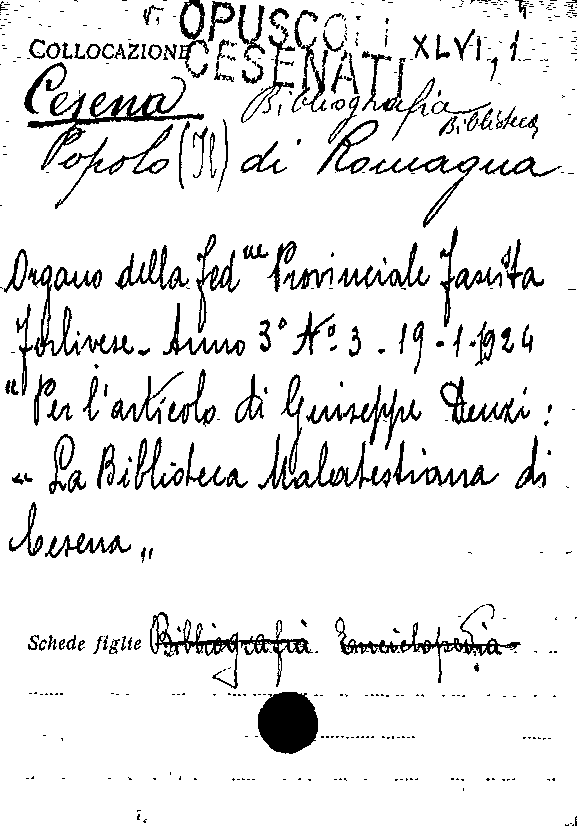 OPUSCOLI
COLLOCAZIONE CESENATI XLVI, 1
Cesena Bibliografia
Biblioteca
Popolo (Il) di Romagna
Organo della Fed.ne Provinciale Fascista
Forlivese - Anno 3° N° 3 - 19-1-1924
"Per l'articolo di Giuseppe :
" La Biblioteca Malatestiana di
Cesena "
Schede figlie Bibliografia Enciclopedia